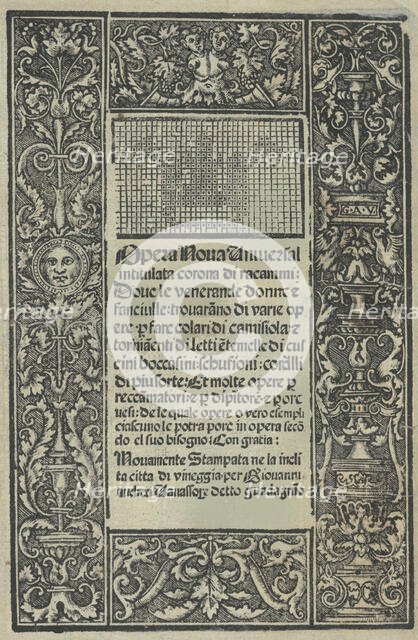 G·A·V·
Opera Noua Uniuersal
intitulata corona di racammi:
Doue le venerande donne e
fanciulle: trouarano di varie ope
re p̱ fare colari di camisiola: e
torniamenti di letti e temelle di cus
cini boccasini: schufioni: cordlli
di piu sorte: Et molte opere p̱
reccamatori: e p̱ dipitore: e p̱ore
uesi: de le quale opere o vero esempli
ciascuno le potra pore in opera secō
do el suo bisogno: Con gratia:
Nouamente Stampata ne la incli
ta citta di vineggia per Giouanni
Uauassore detto
Heritage
Heritage
Heritage
Heritage
Heritage
Heritage